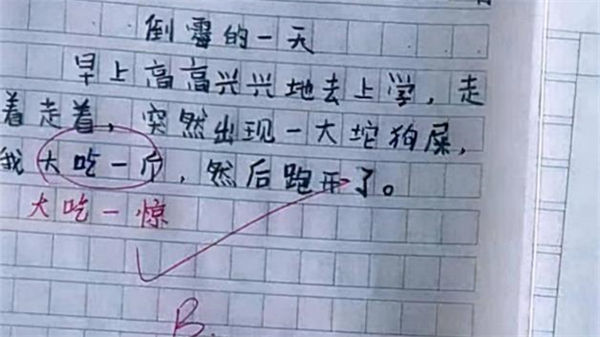 倒霉的一天
早上高高兴兴地去上学，走
着走着，突然出现一大坨狗屎，
我大吃一斤，然后跑开了。
大吃一惊
B.